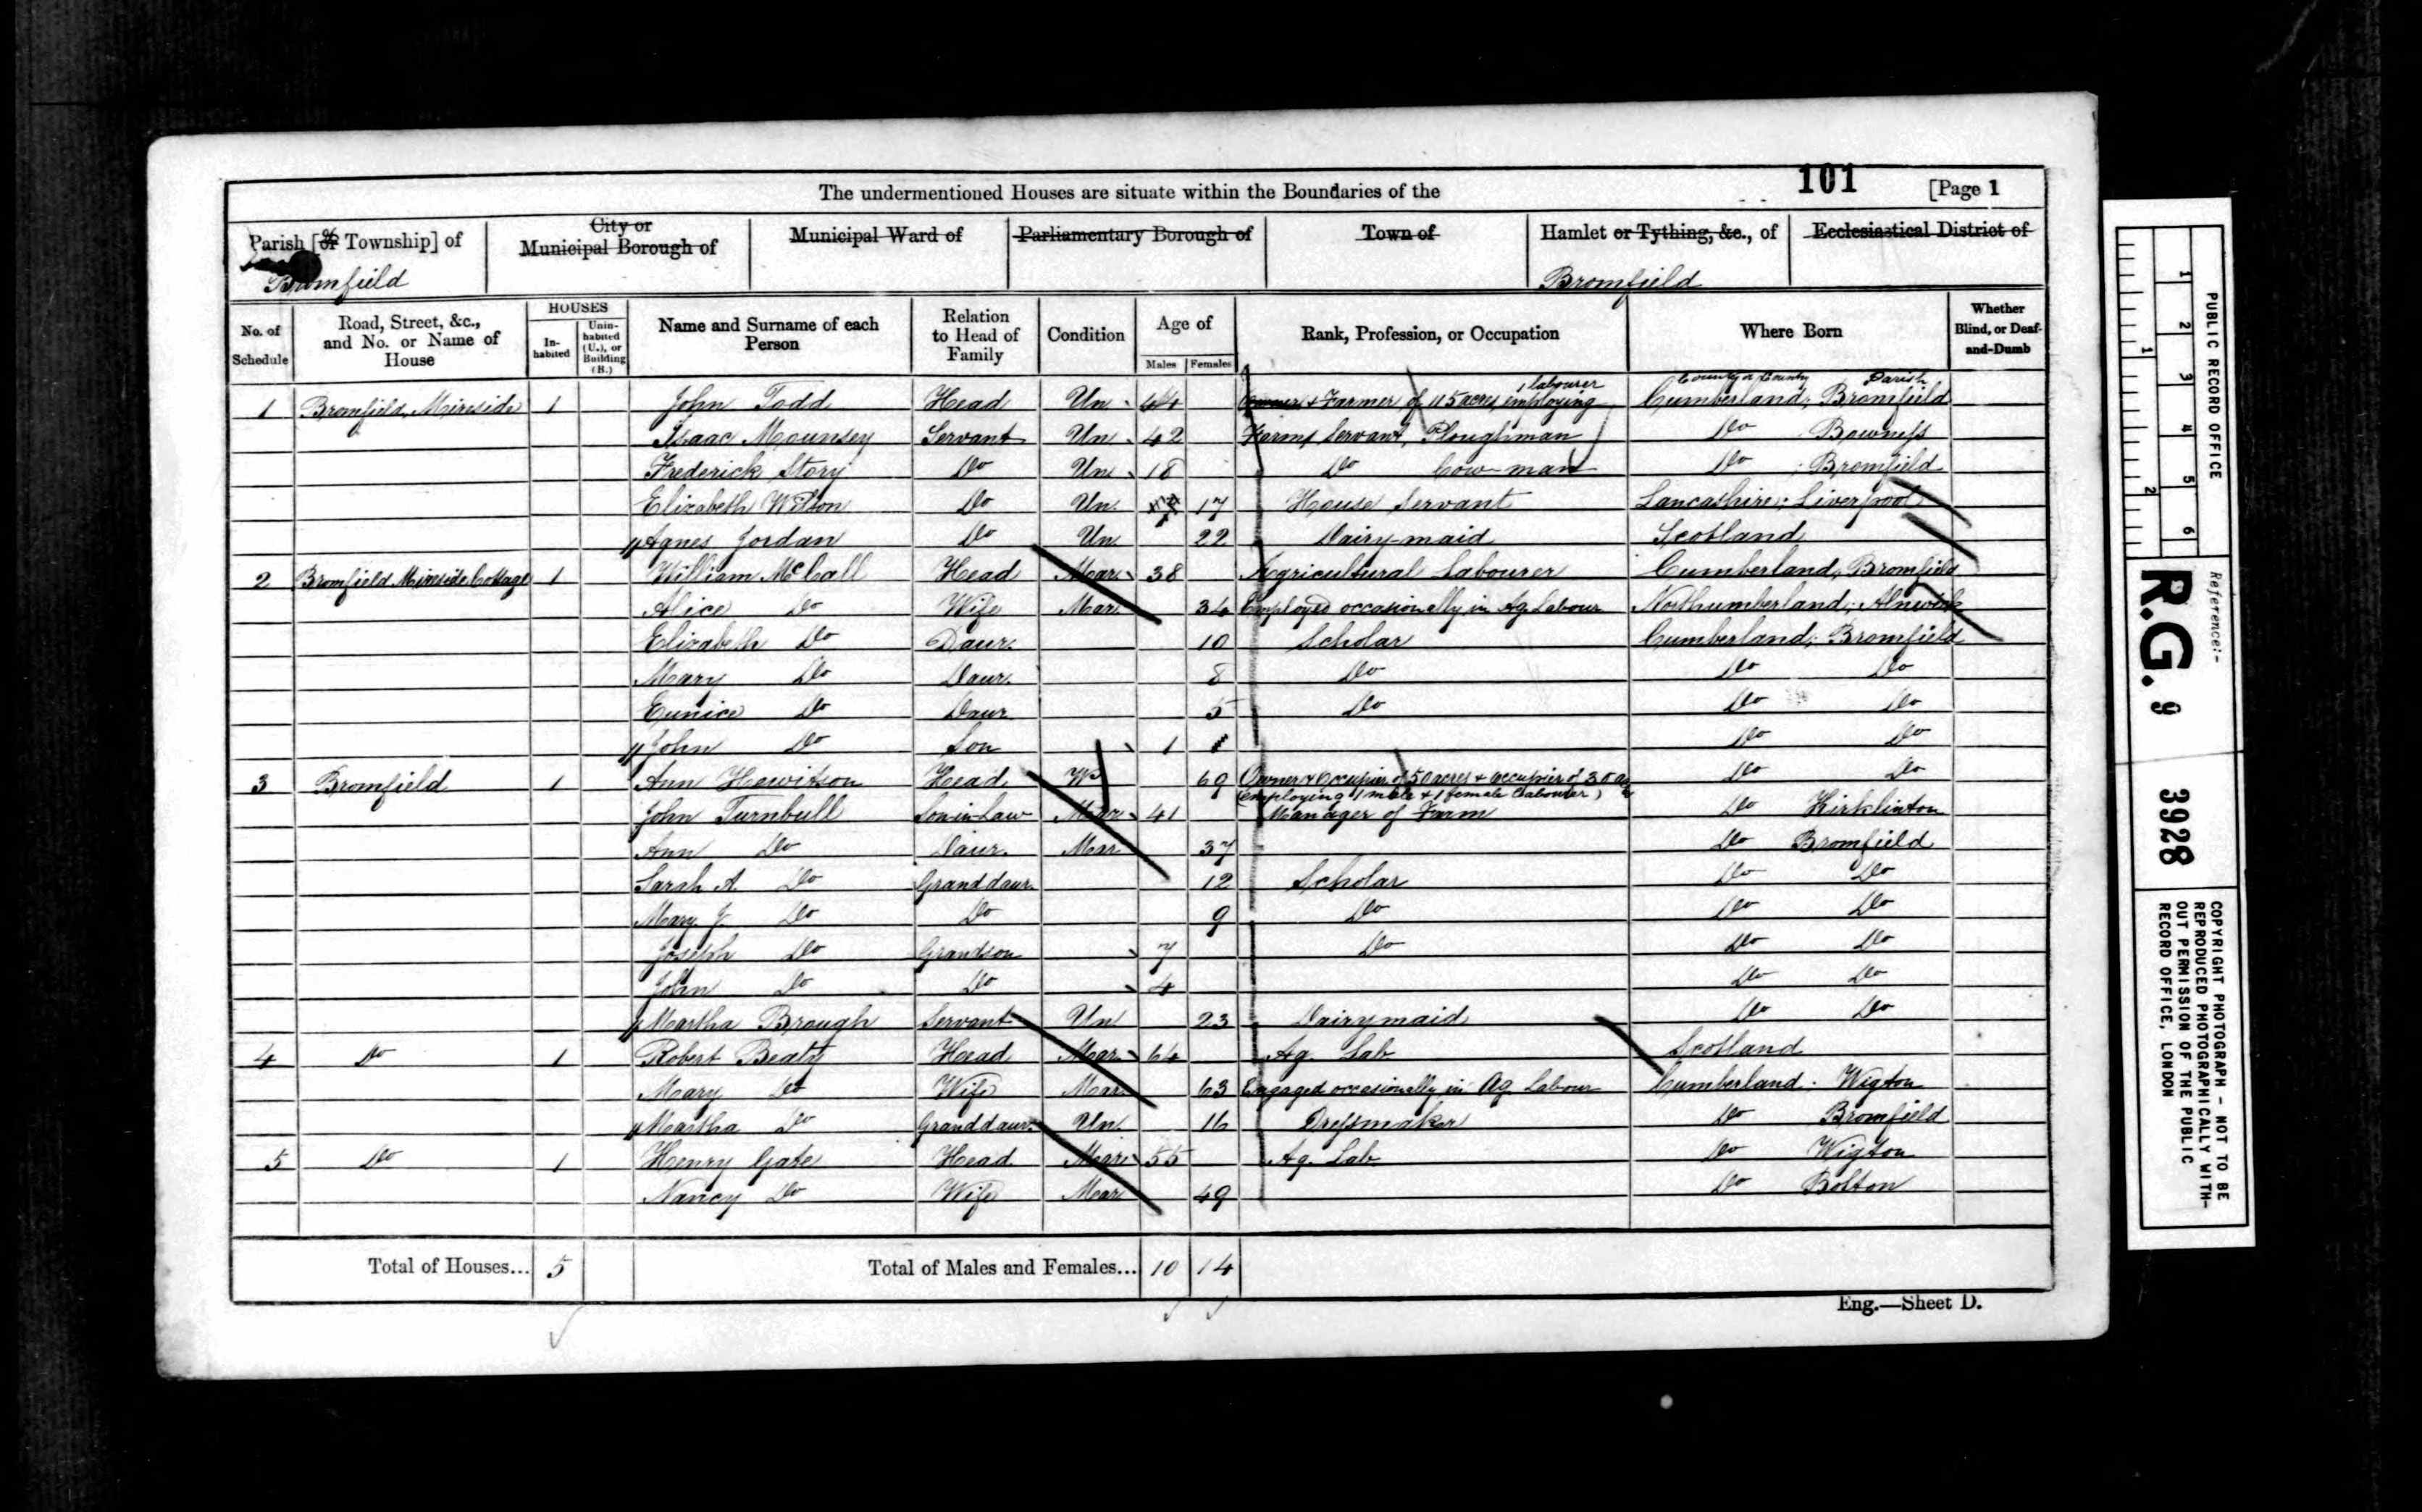 The undermentioned Houses are situate within the Boundaries of the
101 [Page 1
Parish [or Township] of
City or Municipal Borough of
Municipal Ward of
Parliamentary Borough of
Town of
Hamlet or Tything, &c., of
Ecclesiastical District of
Bromfield
Bromfield
No. of Schedule
Road, Street, &c., and No. or Name of House
HOUSES
In-habited
Unin-habited (U.), or Building (B.)
Name and Surname of each Person
Relation to Head of Family
Condition
Age of
Males Females
Rank, Profession, or Occupation
Where Born
Whether Blind, or Deaf-and-Dumb
County or Country Parish
1 labourer
1 Bromfield, Mireside 1 John Todd Head Un 44 & Farmer of 115 acres, employing Cumberland; Bromfield
Isaac Mounsey Servant Un 42 Farm Servant, Ploughman Do Bowness
Frederick Story Do Un 18 Do Cow-man Do Bromfield
Elizabeth Wilson Do Un 17 House Servant Lancashire; Liverpool
Agnes Jordan Do Un 22 Dairy-maid Scotland
2 Bromfield Mireside Cottage 1 William McCall Head Mar 38 Agricultural Labourer Cumberland, Bromfield
Alice Do Wife Mar 34 Employed occasionally in Ag Labour Northumberland; Alnwick
Elizabeth Do Daur. 10 Scholar Cumberland; Bromfield
Mary Do Daur. 8 Do Do Do
Eunice Do Daur 5 Do Do Do
John Do Son 1 Do Do
3 Bromfield 1 Ann Hewitson Head W 69 Owner & Occupier of 50 acres & occupier of 30 Do Do
(employing 1 male & 1 female labourer)
John Turnbull Son-in-Law Mar 41 Manager of Farm Do Kirklinton
Ann Do Daur. Mar 37 Do Bromfield
Sarah A. Do Granddaur. 12 Scholar Do Do
Mary J. Do Do 9 Do Do Do
Joseph Do Grandson 7 Do Do Do
John Do Do 4 Do Do
Martha Brough Servant Un 23 Dairymaid Do Do
4 Do 1 Robert Beaty Head Mar 64 Ag. Lab Scotland
Mary Do Wife Mar 63 Engaged occasionally in Ag. Labour Cumberland. Wigton
Martha Do Granddaur. Un. 16 Dressmaker Do Bromfield
5 Do 1 Henry Gate Head Mar 55 Ag. Lab Do Wigton
Nancy Do Wife Mar 49 Do Bolton
Total of Houses... 5 Total of Males and Females... 10 14
Eng.—Sheet D.
PUBLIC RECORD OFFICE
1 2 3 4 5 6
1 2
Reference:-
R.G. 9 3928
COPYRIGHT PHOTOGRAPH – NOT TO BE
REPRODUCED PHOTOGRAPHICALLY WITH-
OUT PERMISSION OF THE PUBLIC
RECORD OFFICE, LONDON